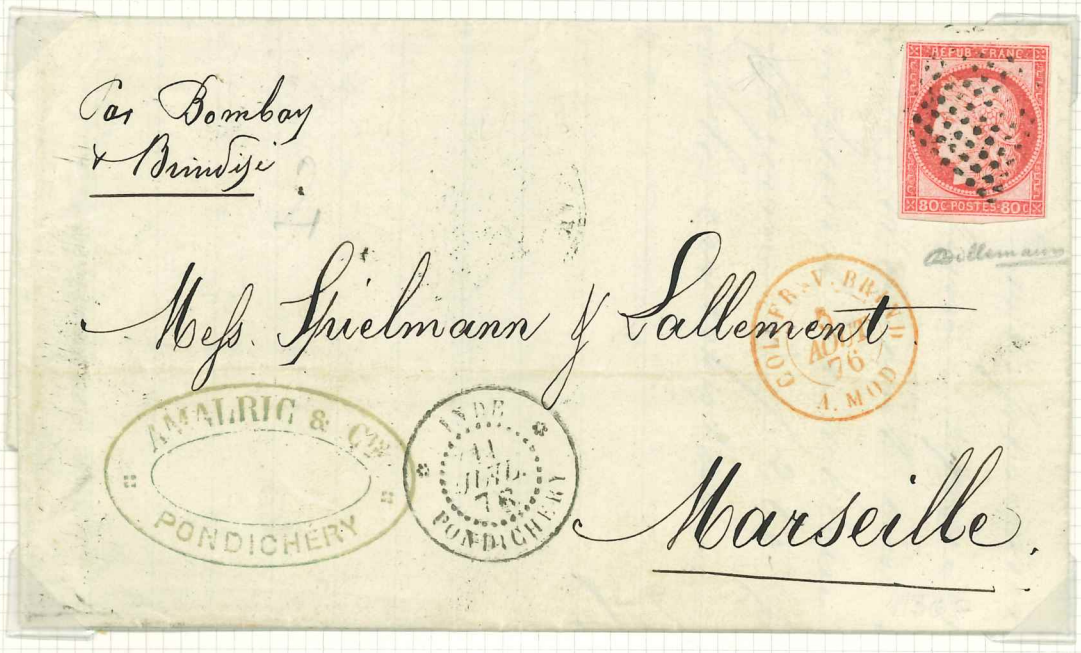 Par Bombay
& Brindisi
REPUB. FRANC.
80 C. POSTES. 80 C.
Mess. Spielmann & Lallement.
COL. FR. V. BRIND
5
AOUT
76
A. MOD
AMALRIC & Cie
PONDICHÉRY
INDE
11
JUIL.
76
PONDICHERY
Marseille.